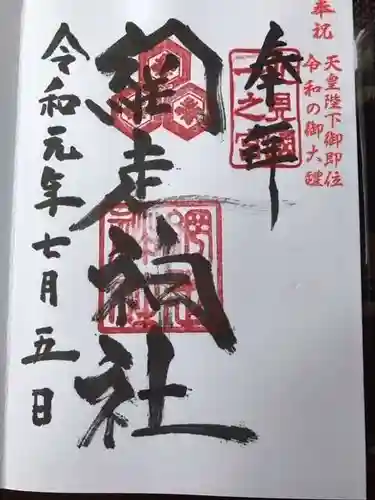 奉祝
天皇陛下御即位
令和の御大禮
奉拝
北見國
一之宮
網走神社
令和元年七月五日